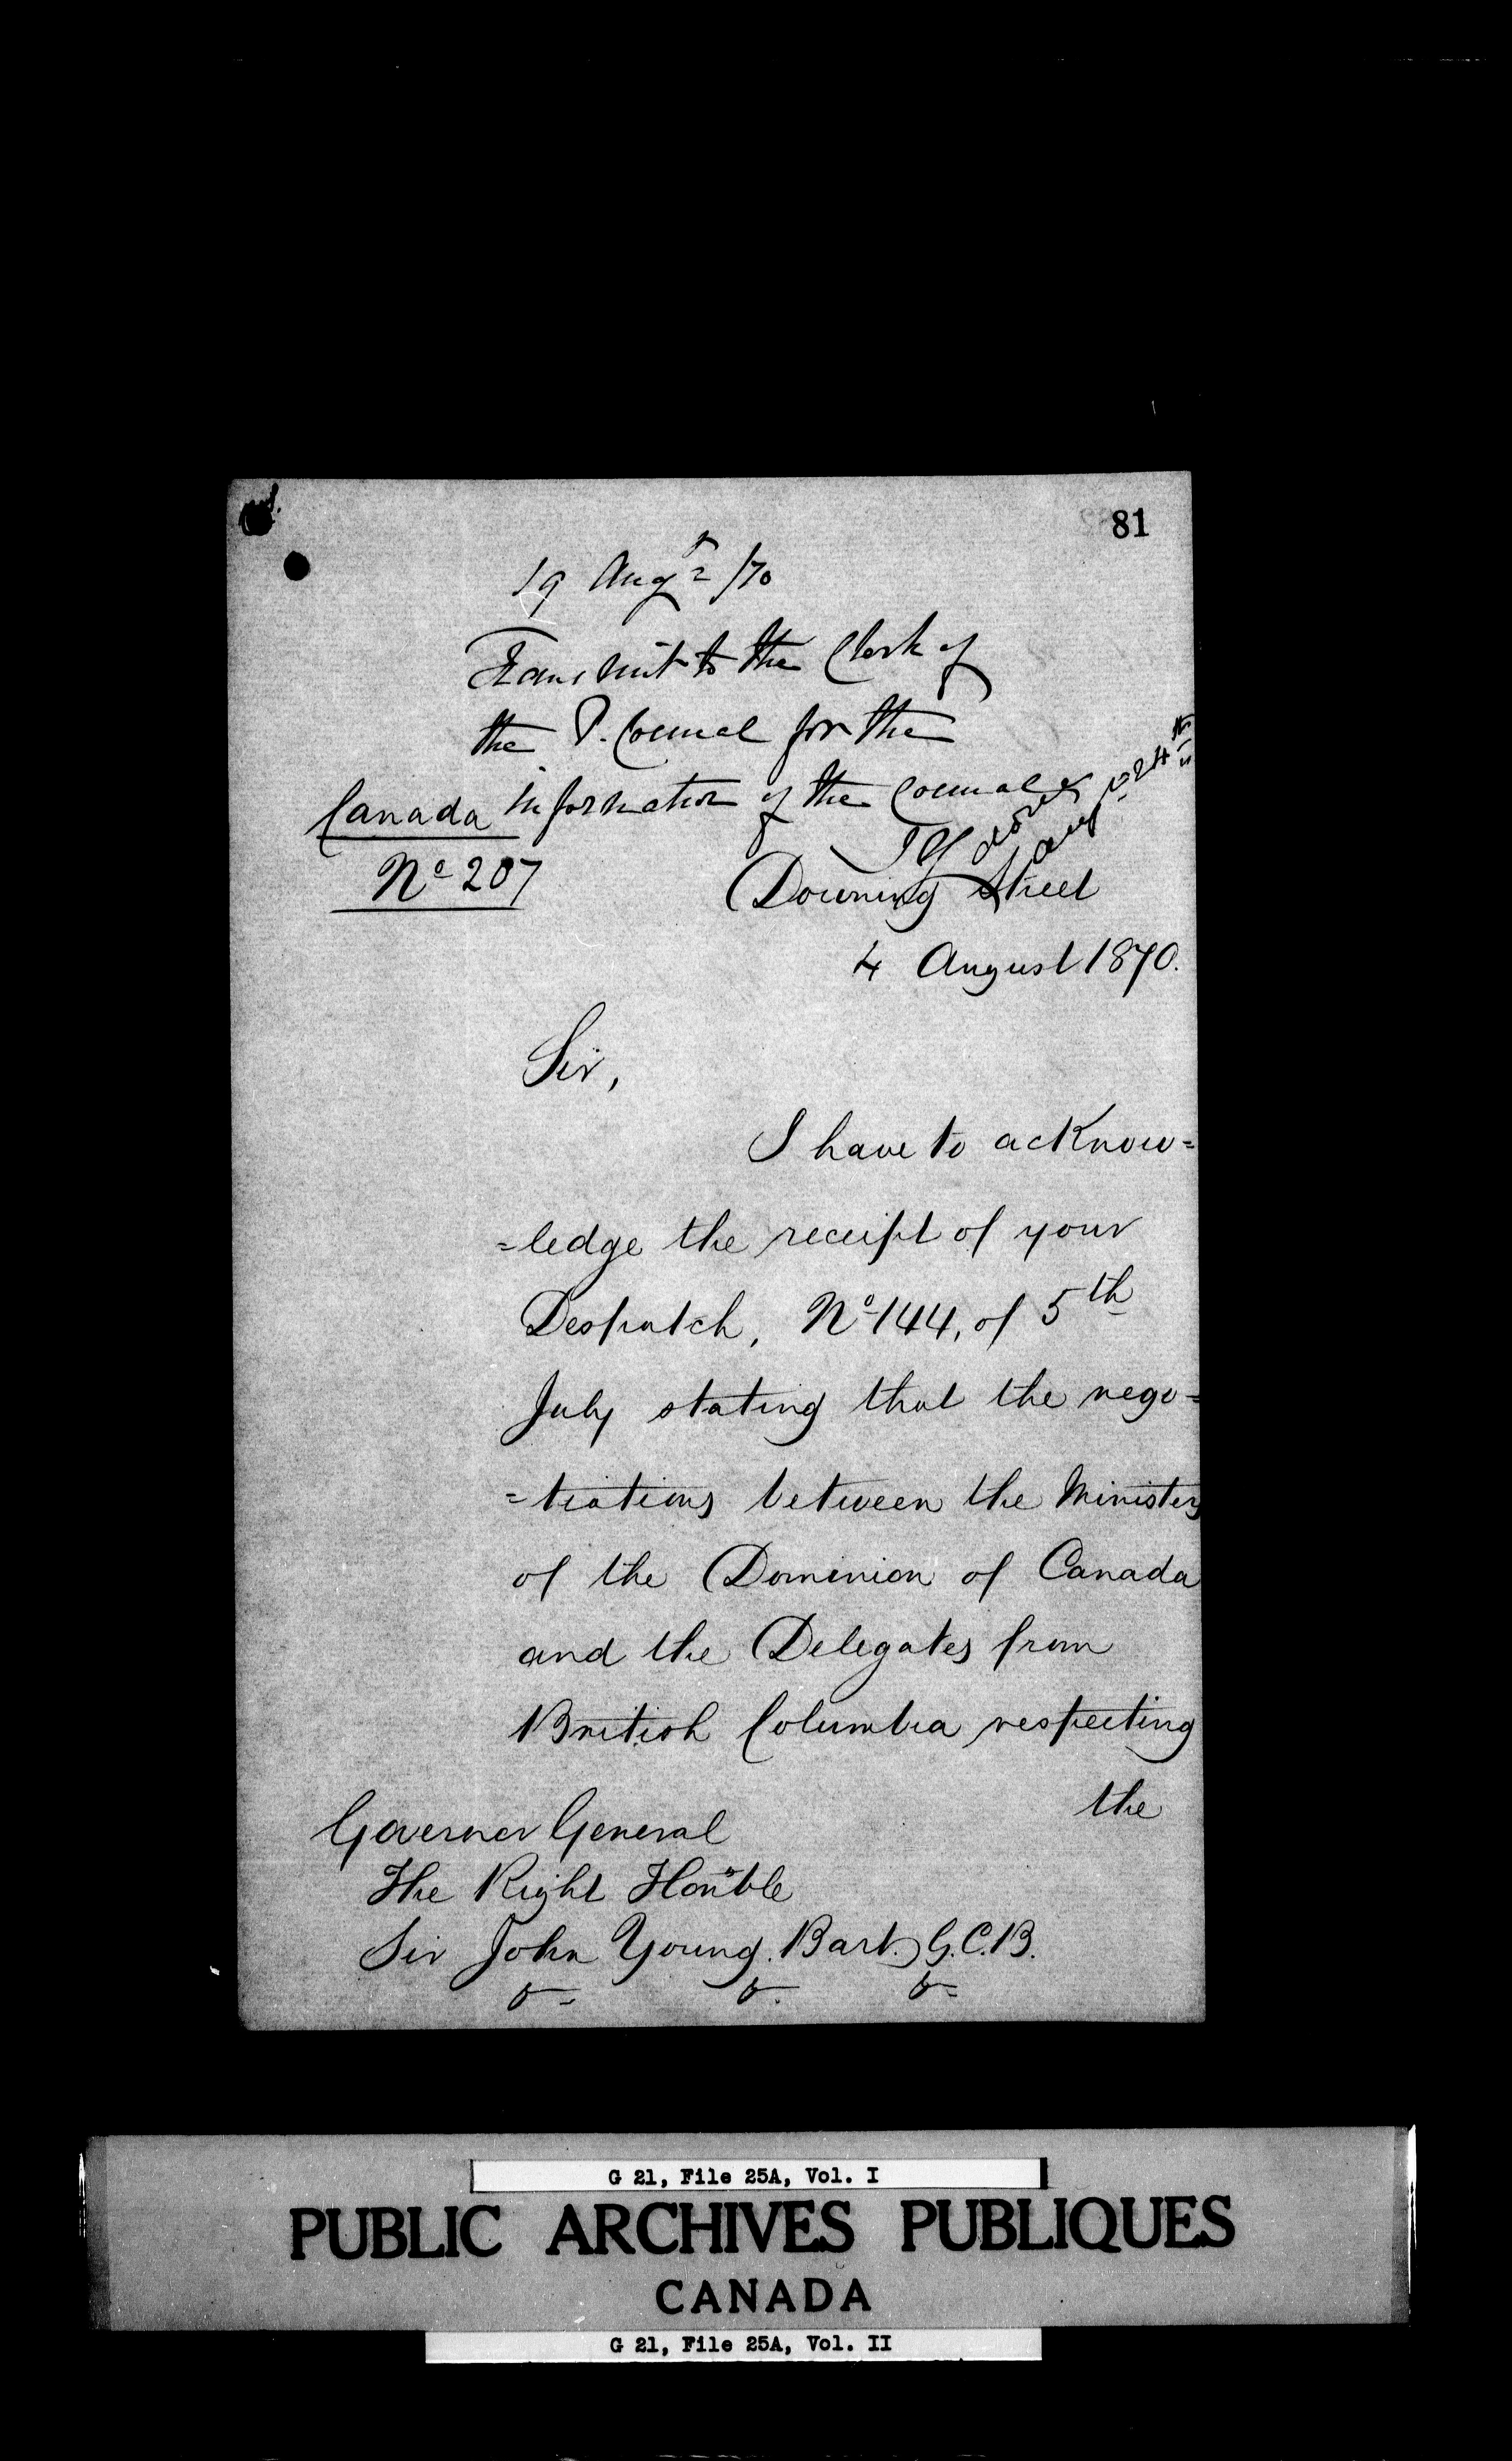 81
19 Augt /70
Transmit to the Clerk of
the P. Council for the
information of the Council
JY
done
Aug 24th
Canada
No 207
Downing Street
4 August 1870.
Sir,
I have to acknow=
=ledge the receipt of your
Despatch, No 144, of 5th
July stating that the nego=
=tiations between the Ministers
of the Dominion of Canada
and the Delegates from
British Columbia respecting
the
Governor General
The Right Honble
Sir John Young. Bart. G.C.B.
G 21, File 25A, Vol. I
PUBLIC ARCHIVES PUBLIQUES
CANADA
G 21, File 25A, Vol. II